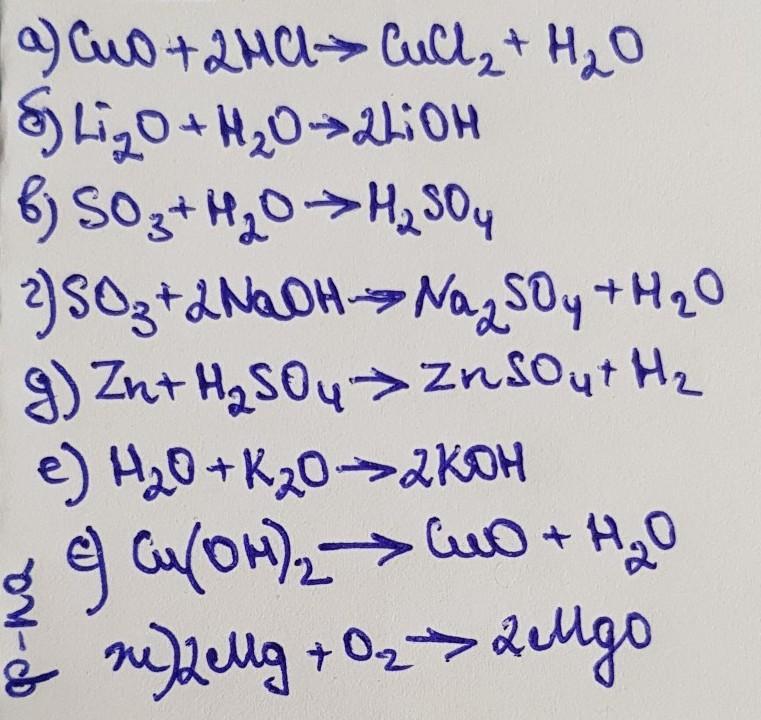 а) CuO + 2HCl → CuCl₂ + H₂O
б) Li₂O + H₂O → 2LiOH
в) SO₃ + H₂O → H₂SO₄
г) SO₃ + 2NaOH → Na₂SO₄ + H₂O
д) Zn + H₂SO₄ → ZnSO₄ + H₂
е) H₂O + K₂O → 2KOH
ё) Cu(OH)₂ → CuO + H₂O
ж) 2Mg + O₂ → 2MgO